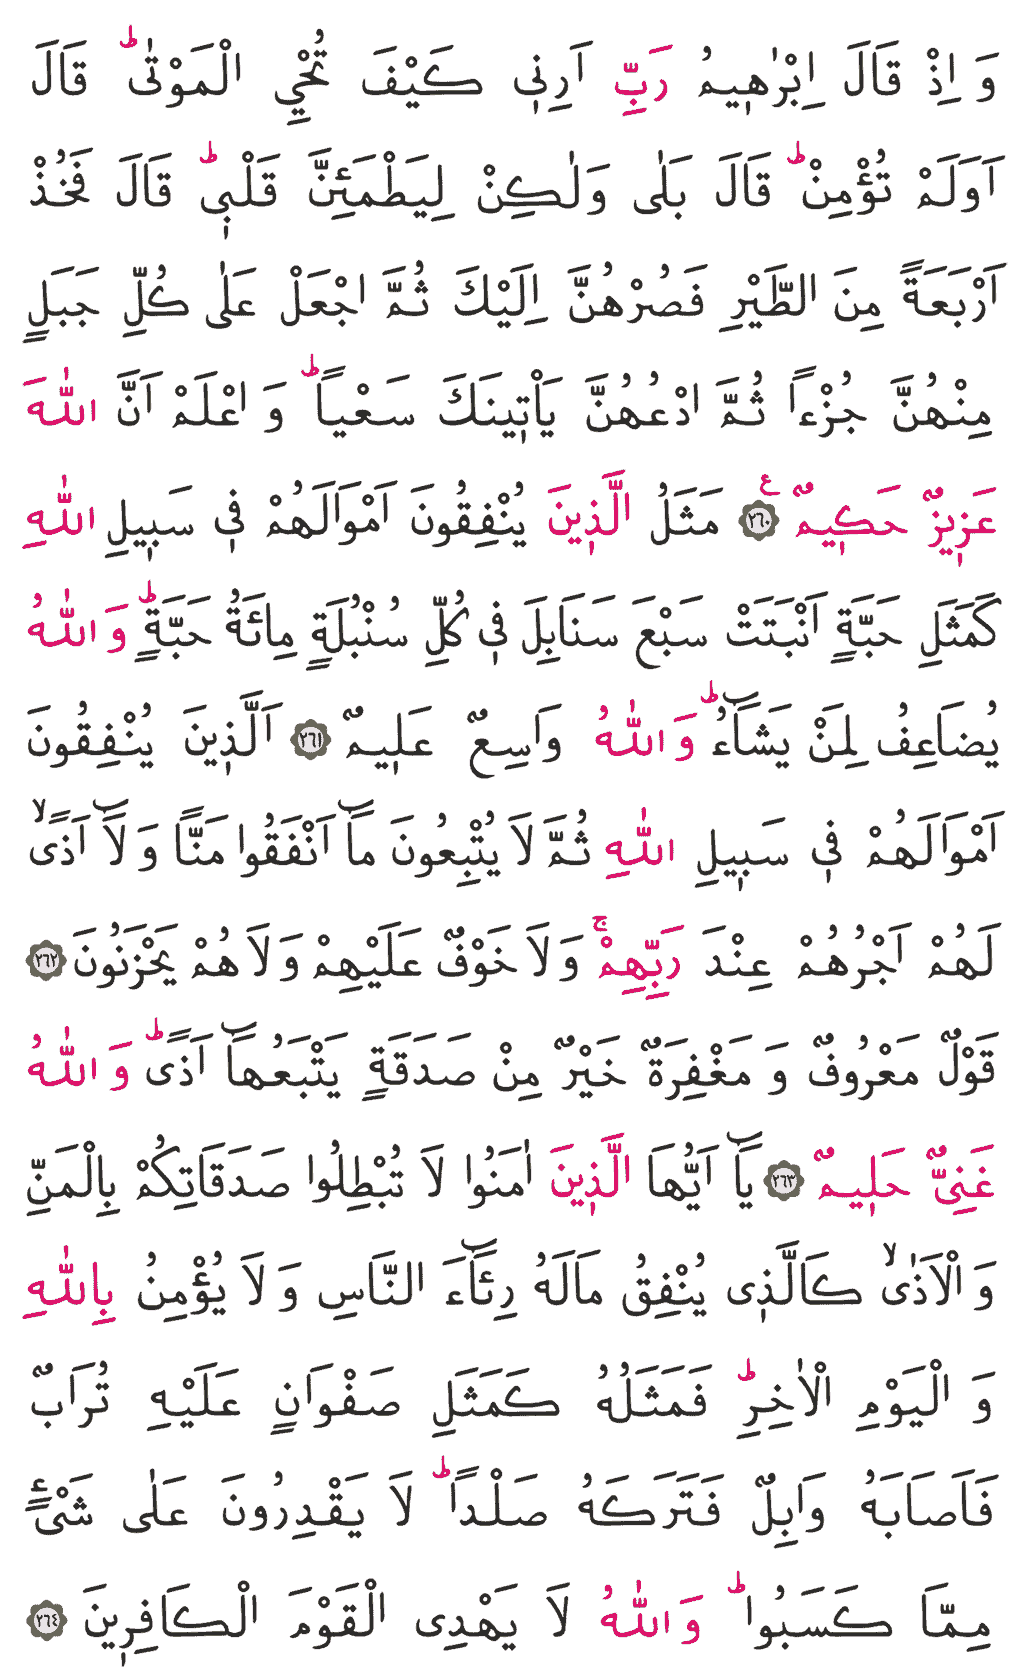 وَ اِذْ قَالَ اِبْرٰهٖيمُ رَبِّ اَرِنٖى كَيْفَ تُحْيِ الْمَوْتٰىؕ قَالَ
اَوَلَمْ تُؤْمِنْؕ قَالَ بَلٰى وَلٰكِنْ لِيَطْمَئِنَّ قَلْبٖىؕ قَالَ فَخُذْ
اَرْبَعَةً مِنَ الطَّيْرِ فَصُرْهُنَّ اِلَيْكَ ثُمَّ اجْعَلْ عَلٰى كُلِّ جَبَلٍ
مِنْهُنَّ جُزْءاً ثُمَّ ادْعُهُنَّ يَاْتٖينَكَ سَعْياًؕ وَ اعْلَمْ اَنَّ اللّٰهَ
عَزٖيزٌ حَكٖيمٌ ࣖ ٢٦٠ مَثَلُ الَّذٖينَ يُنْفِقُونَ اَمْوَالَهُمْ فٖى سَبٖيلِ اللّٰهِ
كَمَثَلِ حَبَّةٍ اَنْبَتَتْ سَبْعَ سَنَابِلَ فٖى كُلِّ سُنْبُلَةٍ مِائَةُ حَبَّةٍؕ وَ اللّٰهُ
يُضَاعِفُ لِمَنْ يَشَٓاءُؕ وَ اللّٰهُ وَاسِعٌ عَلٖيمٌ ٢٦١ اَلَّذٖينَ يُنْفِقُونَ
اَمْوَالَهُمْ فٖى سَبٖيلِ اللّٰهِ ثُمَّ لَا يُتْبِعُونَ مَٓا اَنْفَقُوا مَنًّا وَ لَٓا اَذًىۙ
لَهُمْ اَجْرُهُمْ عِنْدَ رَبِّهِمْۚ وَ لَا خَوْفٌ عَلَيْهِمْ وَ لَا هُمْ يَحْزَنُونَ ٢٦٢
قَوْلٌ مَعْرُوفٌ وَ مَغْفِرَةٌ خَيْرٌ مِنْ صَدَقَةٍ يَتْبَعُهَٓا اَذًىؕ وَ اللّٰهُ
غَنِىٌّ حَلٖيمٌ ٢٦٣ يَٓا اَيُّهَا الَّذٖينَ اٰمَنُوا لَا تُبْطِلُوا صَدَقَاتِكُمْ بِالْمَنِّ
وَ الْاَذٰىۙ كَالَّذٖى يُنْفِقُ مَالَهُ رِئَٓاءَ النَّاسِ وَ لَا يُؤْمِنُ بِاللّٰهِ
وَ الْيَوْمِ الْاٰخِرِؕ فَمَثَلُهُ كَمَثَلِ صَفْوَانٍ عَلَيْهِ تُرَابٌ
فَاَصَابَهُ وَابِلٌ فَتَرَكَهُ صَلْداًؕ لَا يَقْدِرُونَ عَلٰى شَىْءٍ
مِمَّا كَسَبُواؕ وَ اللّٰهُ لَا يَهْدِى الْقَوْمَ الْكَافِرٖينَ ٢٦٤